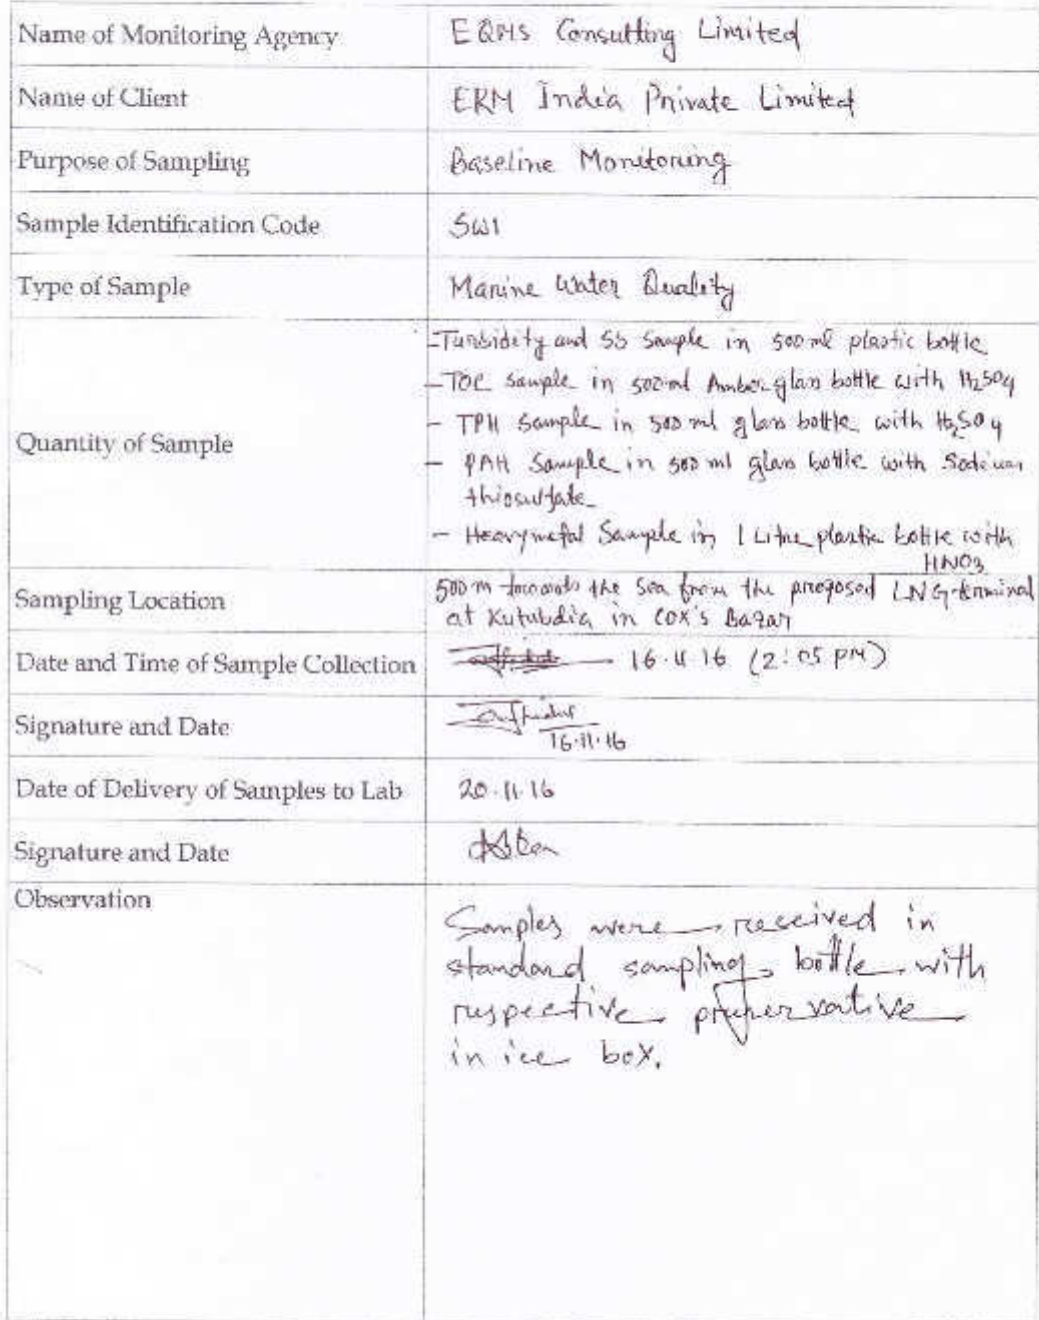 Name of Monitoring Agency EQMS Consulting Limited
Name of Client ERM India Private Limited
Purpose of Sampling Baseline Monitoring
Sample Identification Code SW1
Type of Sample Marine Water Quality
Quantity of Sample
- Turbidity and SS Sample in 500ml plastic bottle
- TOC sample in 500ml Amber glass bottle with H2SO4
- TPH Sample in 500 ml glass bottle with H2SO4
- PAH Sample in 500 ml glass bottle with Sodium
thiosulfate
- Heavymetal Sample in 1 Litre plastic bottle with
HNO3
Sampling Location 500 m towards the Sea from the proposed LNG terminal
at Kutubdia in Cox's Bazar
Date and Time of Sample Collection 16.11.16 (2:05 PM)
Signature and Date
16.11.16
Date of Delivery of Samples to Lab 20.11.16
Signature and Date
Observation
Samples were received in
standard sampling bottle with
respective preservative
in ice box.